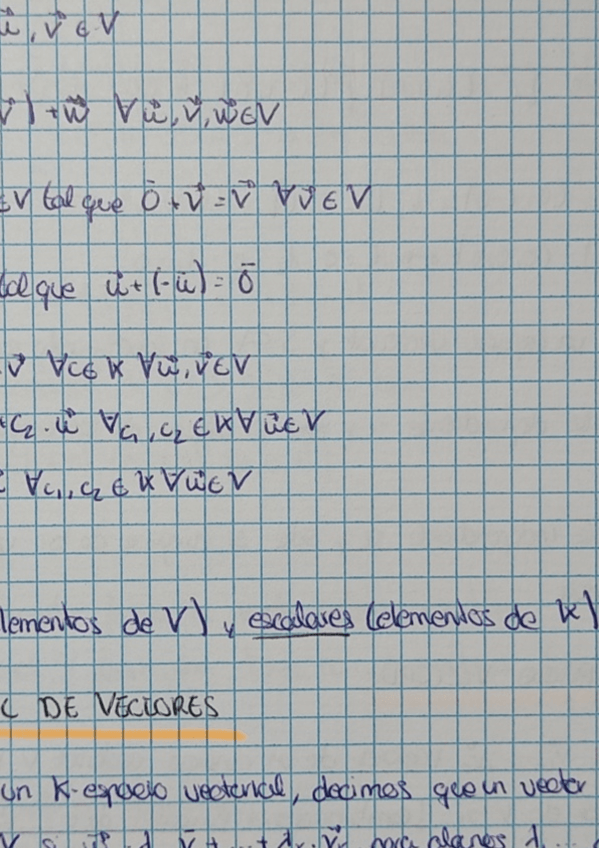 u⃗, v⃗ ∈ V
v⃗) + w⃗ ∀ u⃗, v⃗, w⃗ ∈ V
∈ V tal que 0̄ + v⃗ = v⃗ ∀ v⃗ ∈ V
tal que u⃗ + (-u⃗) = 0̄
v⃗ ∀c ∈ K ∀ u⃗, v⃗ ∈ V
+ c₂ · u⃗ ∀ c₁, c₂ ∈ K ∀ u⃗ ∈ V
∀ c₁, c₂ ∈ K ∀ u⃗ ∈ V
lementos de V) y escalares (elementos de K)
L DE VECTORES
un K-espacio vectorial, decimos que un vector